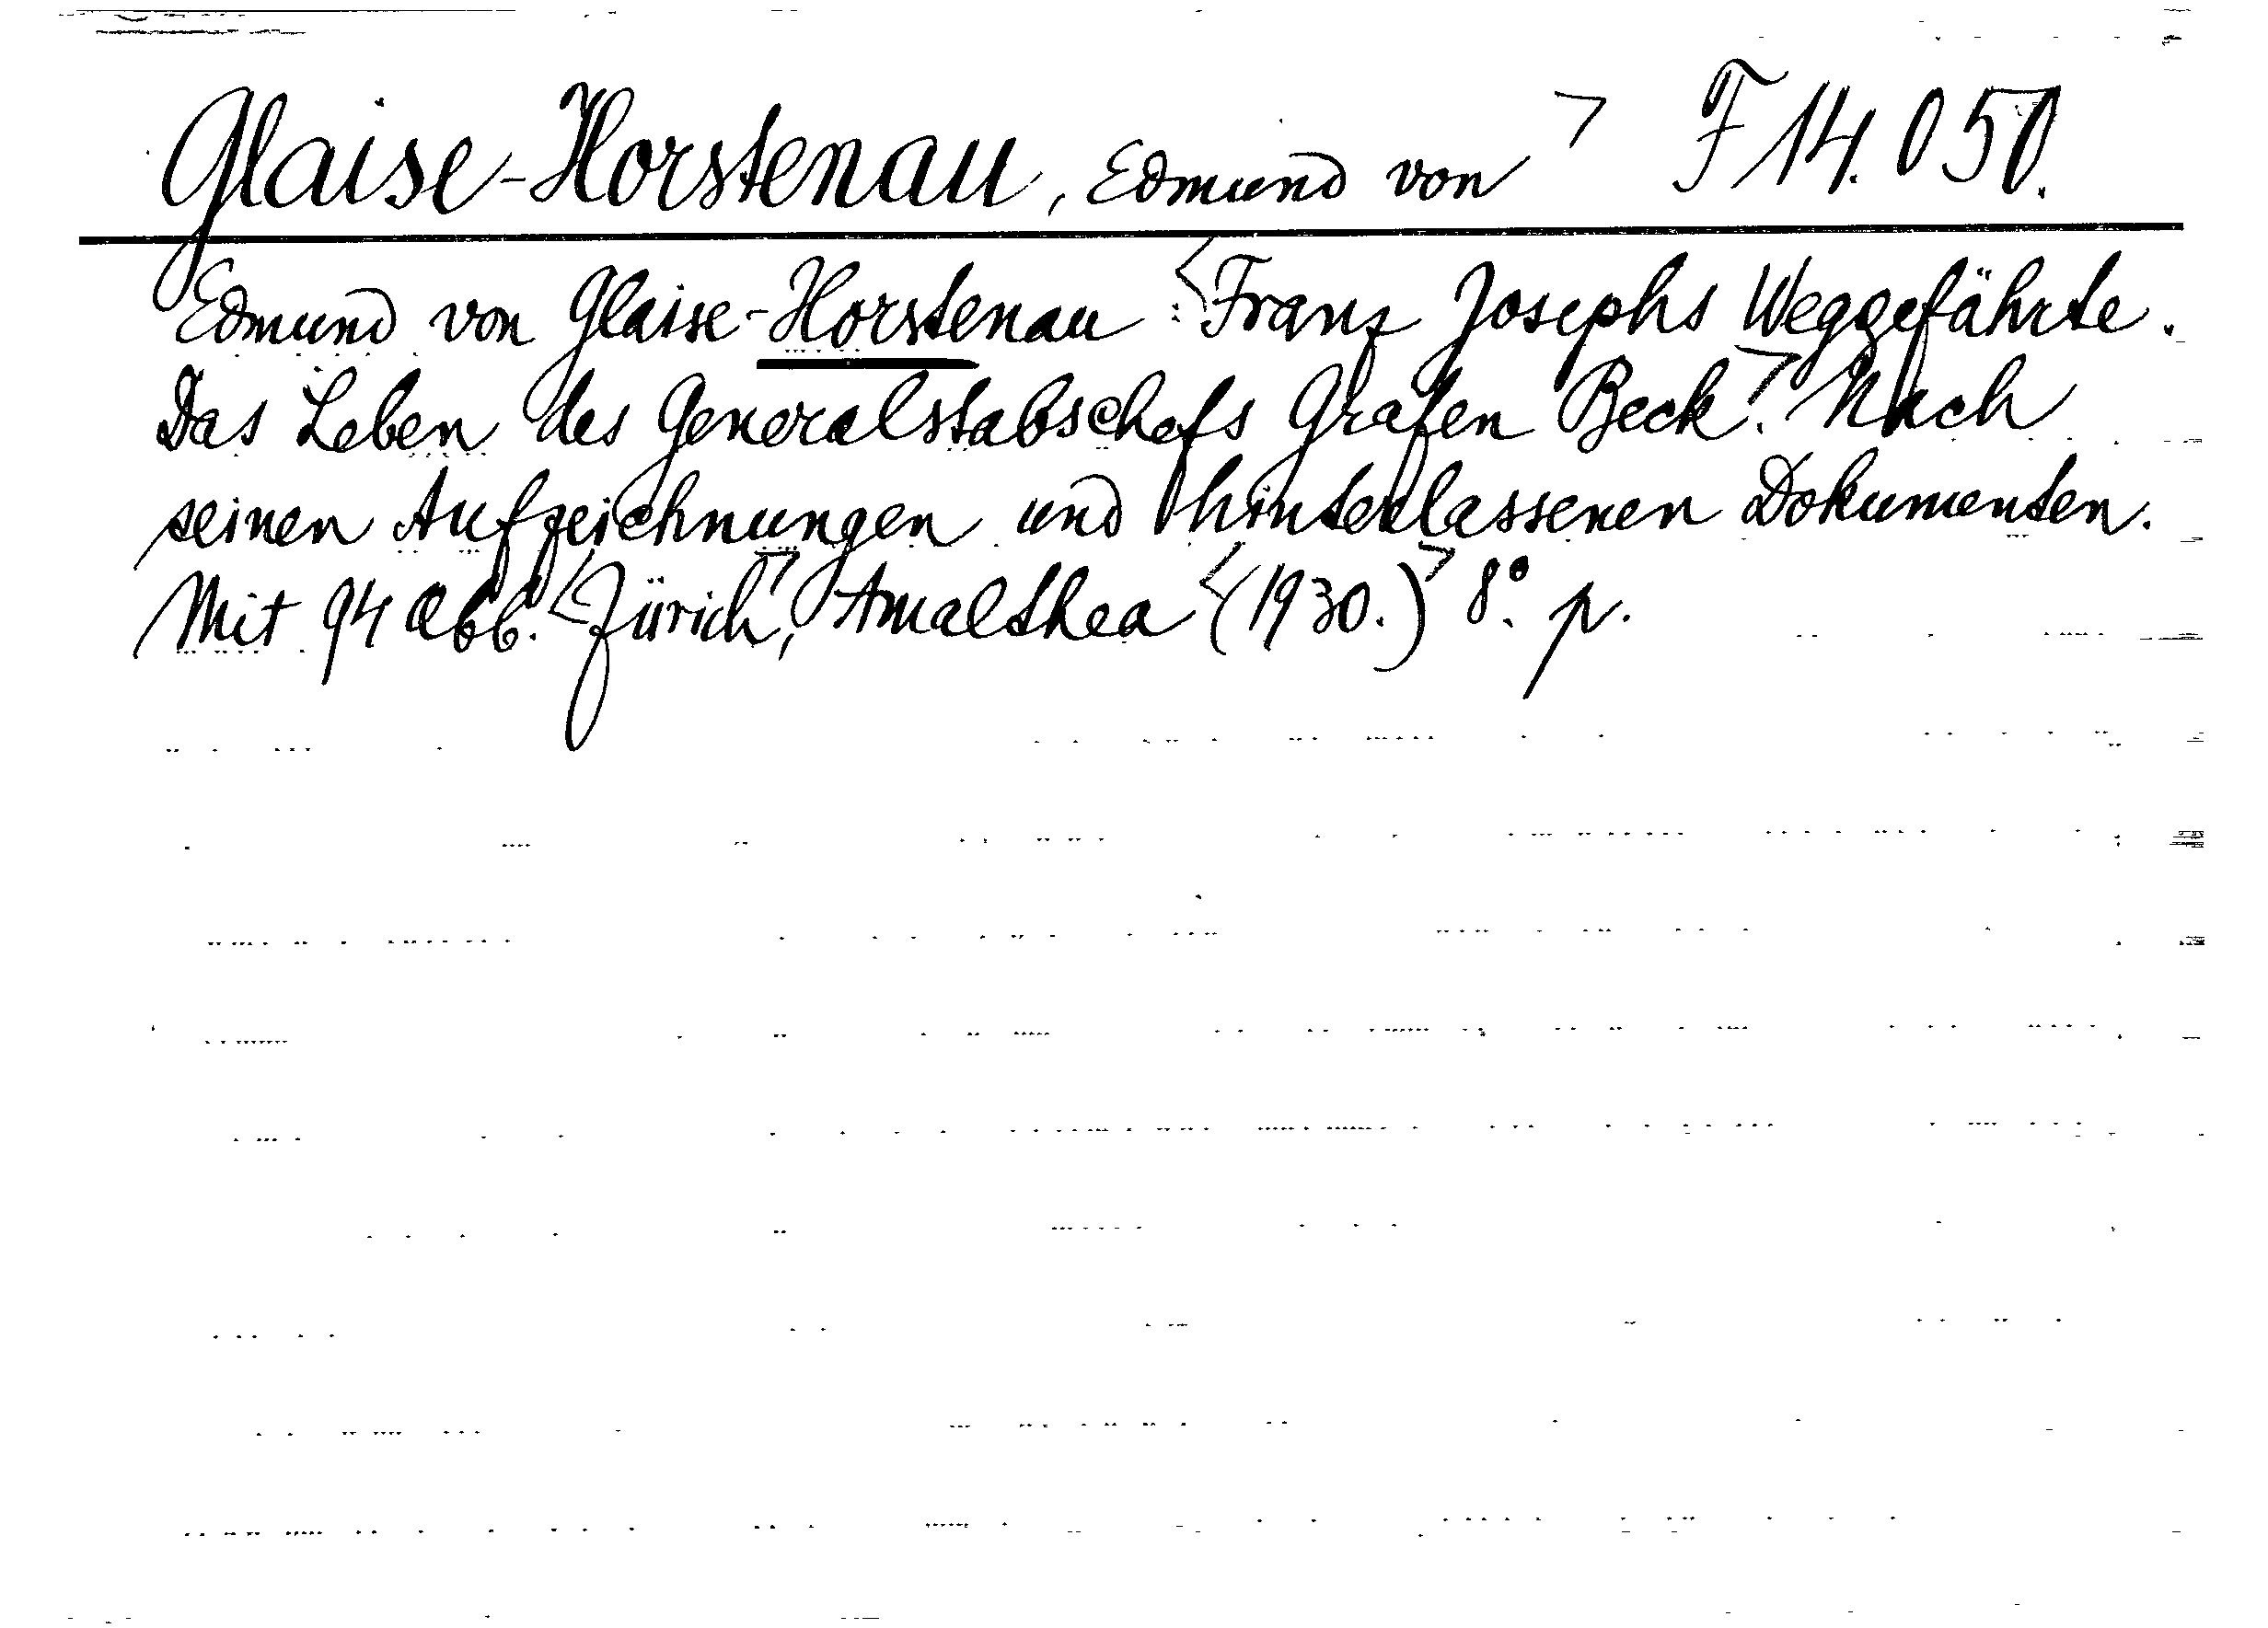 Glaise-Horstenau, Edmund von > F 14.050.
Edmund von Glaise-Horstenau: <Franz Josephs Weggefährte.
Das Leben des Generalstabschefs Grafen Beck.> Nach
seinen Aufzeichnungen und hinterlassenen Dokumenten.
Mit 94 Abb. <Zürich>, Amalthea <(1930.)> 8°. p.